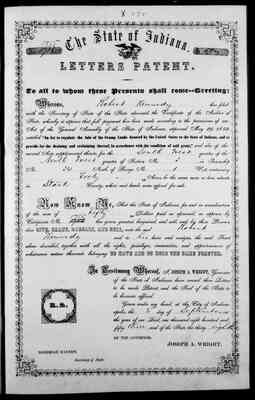 The State of Indiana.
LETTERS PATENT.
To all to whom these Presents shall come—Greeting:
Whereas, Robert Kennedy has filed
with the Secretary of State of the State aforesaid the Certificate of the Auditor of
State, whereby it appears that full payment has been made according to the provisions of an
Act of the General Assembly of the State of Indiana, approved May
entitled "An Act to regulate the Sale of the Swamp Lands donated by the United States to the State of Indiana, and to
provide for the draining and reclaiming thereof, in accordance with the condition of said grant,"
South West quarter of the
North West quarter of Section No. in Township
No. North, of Range No.
Forty Acres
Stark County, where said lands were offered for sale.
Now Know Ye, That the State of Indiana for and in consideration
of the sum of Fifty Dollars
have given, granted, bargained and sold, and by these Presents
also GIVE, GRANT, BARGAIN, AND SELL, unto the said Robert
Kennedy and to his heirs and assigns, the said Tract
above described, together with all the rights, privileges, immunities, and appurtenances of
whatsoever nature thereunto belonging: TO HAVE AND TO HOLD THE SAME FOREVER.
In Testimony Whereof, I, JOSEPH A. WRIGHT, Governor
of the State of Indiana have caused these Letters
to be made Patent, and the Seal of the State to
be hereunto affixed.
Given under my hand, at the City of Indianapolis,
the day of September in
the year of our Lord, one thousand eight hundred and
fifty and of the State the thirty eighth
BY THE GOVERNOR.
JOSEPH A. WRIGHT.
Secretary of State.